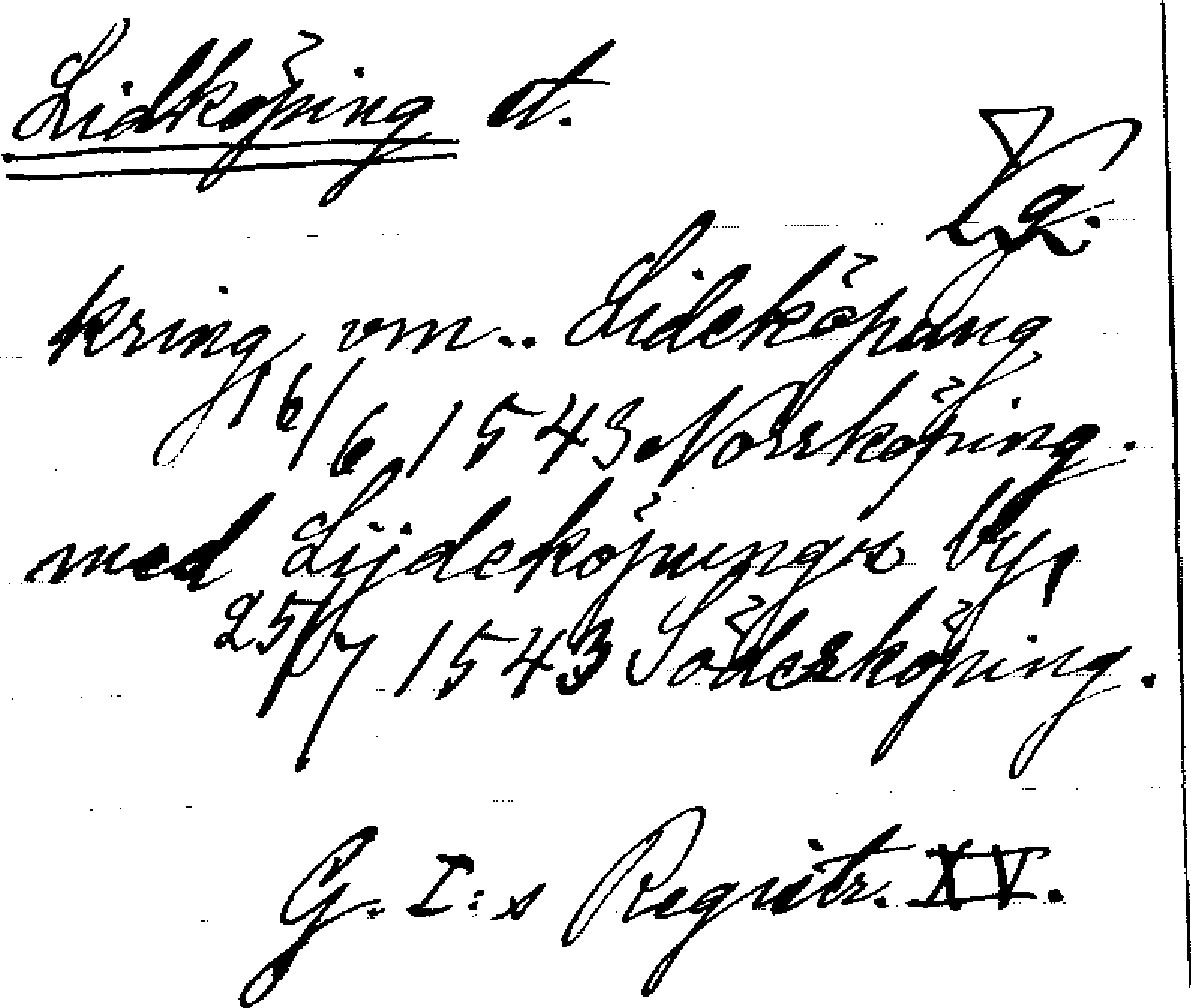 Lidköping st.
Vg.
kring vm.. Lideköpung
16/6 1543 Norrköping.
med Lijdeköpungx by,
25/7 1543 Söderköping.
G. I:s Registr. XV.